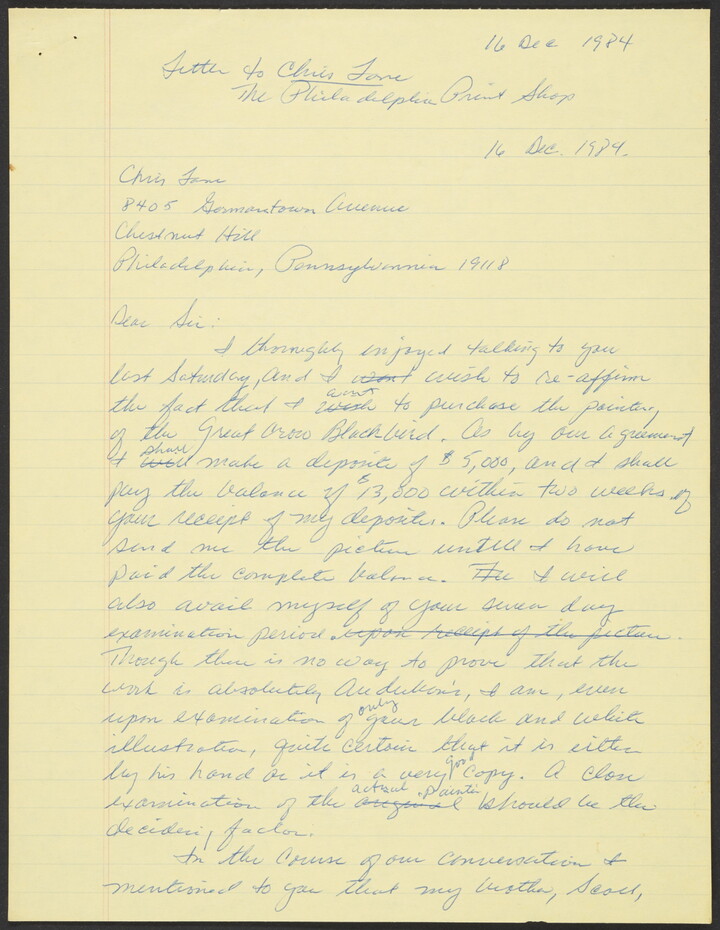 16 Dec 1984
Letter to Chris Lane
The Philadelphia Print Shop
16 Dec. 1984.
Chris Lane
8405 Germantown Avenue
Chestnut Hill
Philadelphia, Pennsylvannia 19118
Dear Sir:
I thoroughly enjoyed talking to you
last Saturday, and I want wish to re-affirm
the fact that I wish want to purchase the painting
of the Great Crow Blackbird. As by our agreement
I will shall make a deposite of $5,000, and I shall
pay the balance of $13,000 within two weeks of
your receipt of my deposite. Please do not
send me the picture untill I have
paid the complete balance. The I will
also avail myself of your seven day
examination period upon receipt of the picture.
Though there is no way to prove that the
work is absolutely Audubon's, I am, even
upon examination of only your black and white
illustration, quite certain that it is either
by his hand or it is a very good copy. A close
examination of the original actual painting should be the
deciding factor.
In the course of our conversation I
mentioned to you that my brother, Scott,